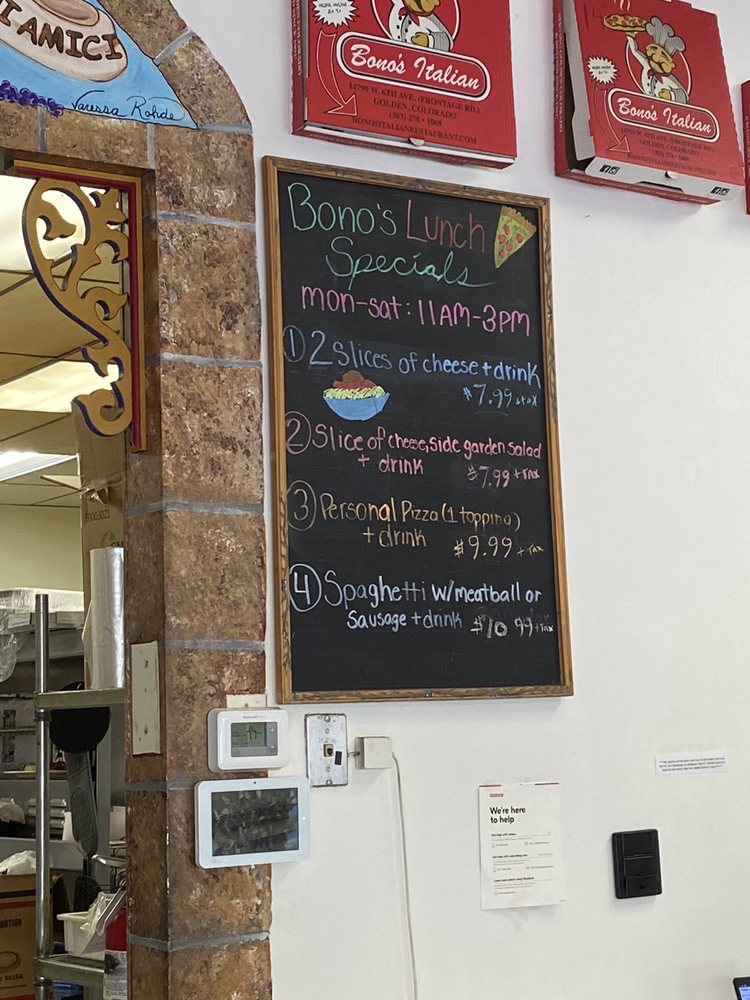 I AMICI
Vanessa Rohde
Bono's Italian
14799 W. 6TH AVE. (FRONTAGE RD.)
GOLDEN, COLORADO
(303) 278 • 1068
BONOSITALIANRESTAURANT.COM
Bono's Italian
14799 W. 6TH AVE. (FRONTAGE RD.)
GOLDEN, COLORADO
Bono's Lunch
Specials
mon-sat: 11AM-3PM
1 2 Slices of cheese + drink
$7.99 + tax
2 Slice of cheese, side garden salad
+ drink $7.99 + Tax
3 Personal Pizza (1 topping)
+ drink $9.99 + Tax
4 Spaghetti w/meatball or
Sausage + drink $10 99 + Tax
We're here
to help